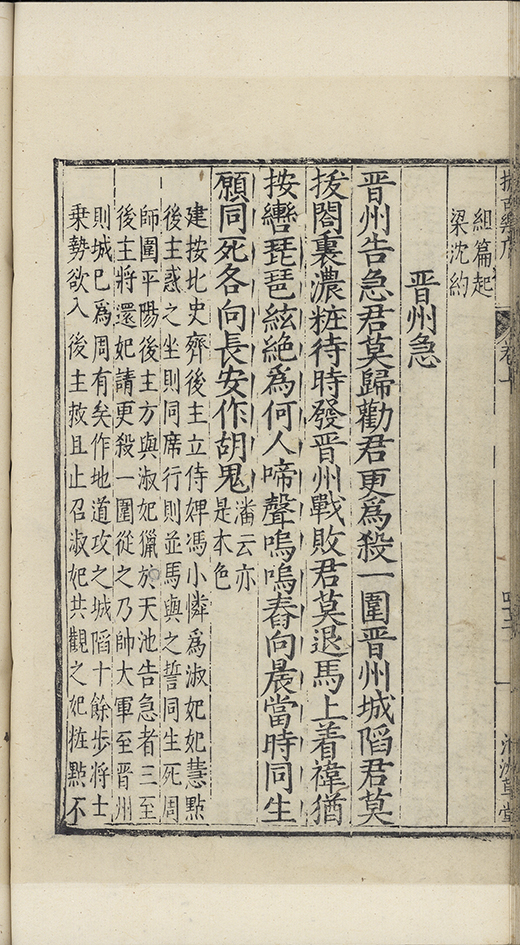 擬古樂府
卷上
組篇起
梁沈約
晋州急
晋州告急君莫歸勸君更爲殺一圍晋州城陷君莫
拔閣裏濃粧待時發晋州戰敗君莫退馬上着褘猶
按轡琵琶絃絶爲何人啼聲嗚嗚春向晨當時同生
願同死各向長安作胡鬼
潘云亦
是本色
建按北史齊後主立侍婢馮小憐爲淑妃妃慧黠
後主惑之坐則同席行則並馬與之誓同生死周
師圍平陽後主方與淑妃獵於天池告急者三至
後主將還妃請更殺一圍從之乃帥大軍至晋州
則城巳爲周有矣作地道攻之城陷十餘歩將士
乗勢欲入後主敕且止召淑妃共觀之妃粧點不